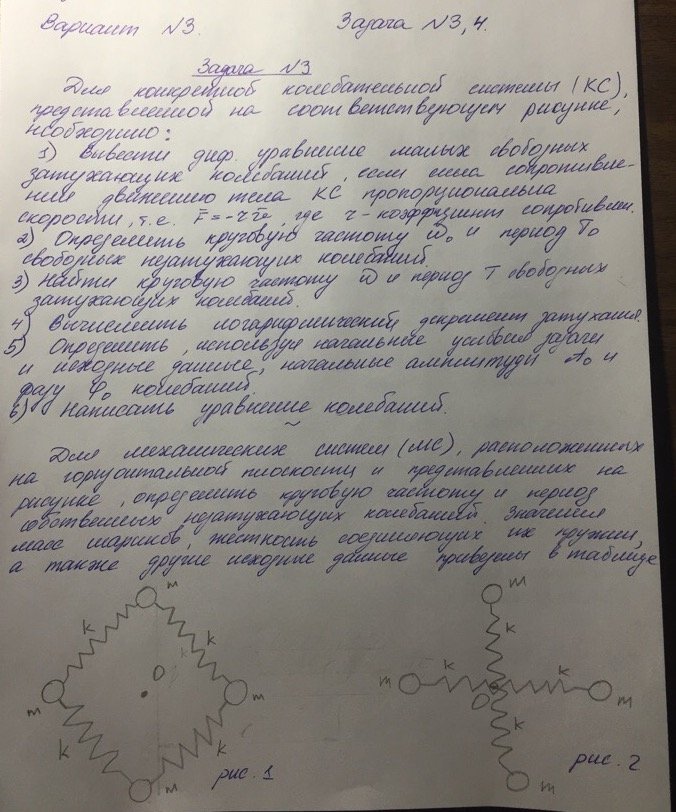 Вариант №3. Задача №3,4.
Задача №3
Для конкретной колебательной системы (КС),
представленной на соответствующем рисунке,
необходимо:
1) Вывести диф. уравнение малых свободных
затухающих колебаний, если сила сопротивле-
ния движению тела КС пропорциональна
скорости, т.е. F̄ = -rv̄, где r - коэффициент сопротивлен.
2) Определить круговую частоту ω₀ и период T₀
свободных незатухающих колебаний.
3) Найти круговую частоту ω и период T свободных
затухающих колебаний.
4) Вычислить логарифмический декремент затухания.
5) Определить, используя начальные условия задачи
и исходные данные, начальные амплитуды A₀ и
фазу φ₀ колебаний.
6) Написать уравнение колебаний.
~
Для механических систем (МС), расположенных
на горизонтальной плоскости и представленных на
рисунке, определить круговую частоту и период
собственных незатухающих колебаний. Значения
масс шариков, жесткость соединяющих их пружин,
а также другие исходные данные приведены в таблице
m
k
k
O
k
m
m
k
k
m
рис. 1
m
k
m
k
k
m
O
k
m
рис. 2